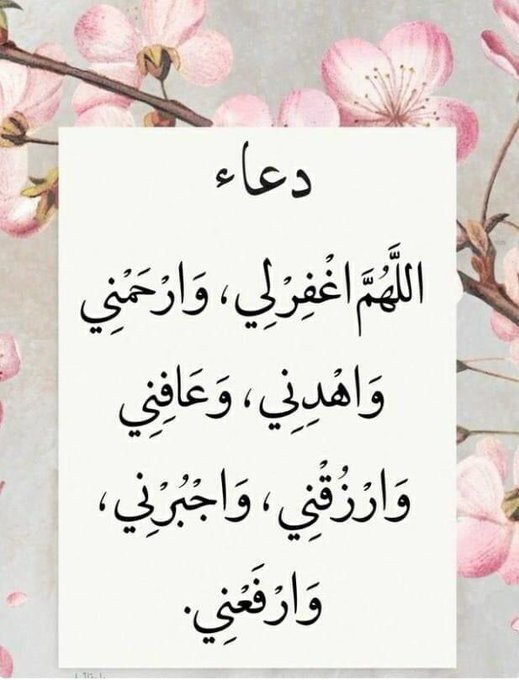 دعاء
اللَّهُمَّ اغْفِرْ لِي، وَارْحَمْنِي
وَاهْدِنِي، وَعَافِنِي
وَارْزُقْنِي، وَاجْبُرْنِي،
وَارْفَعْنِي.